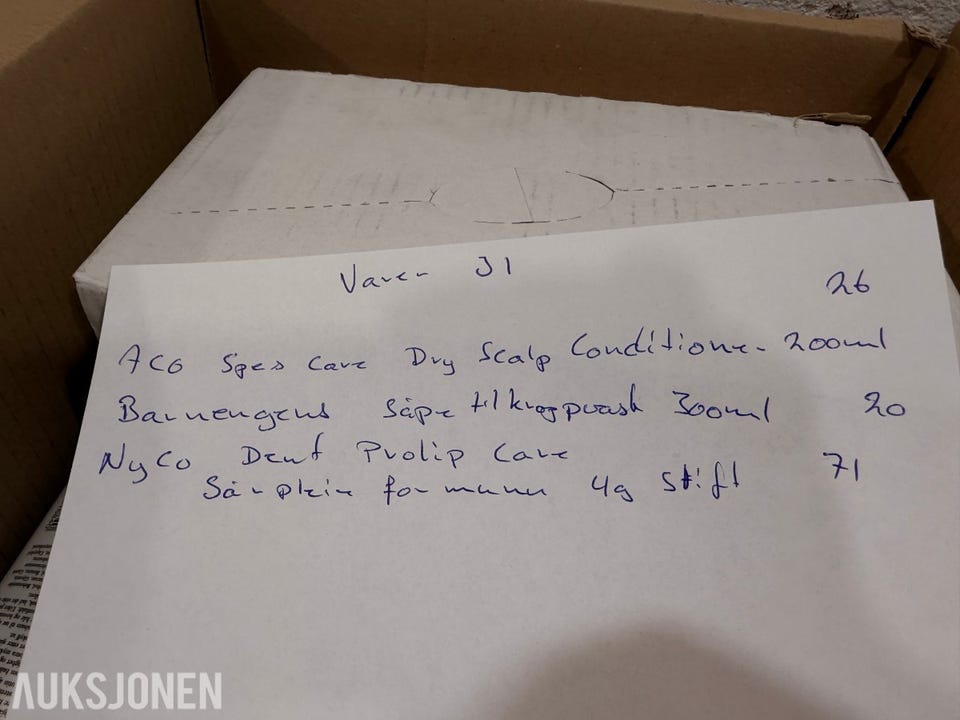 Varer J1
26
ACO Spes Care Dry Scalp Conditioner 200ml
Barnengens Såpe til kroppvask 300ml 20
NyCo Dent Prolip Care
Sårpleie for munn 4g stift 71
AUKSJONEN